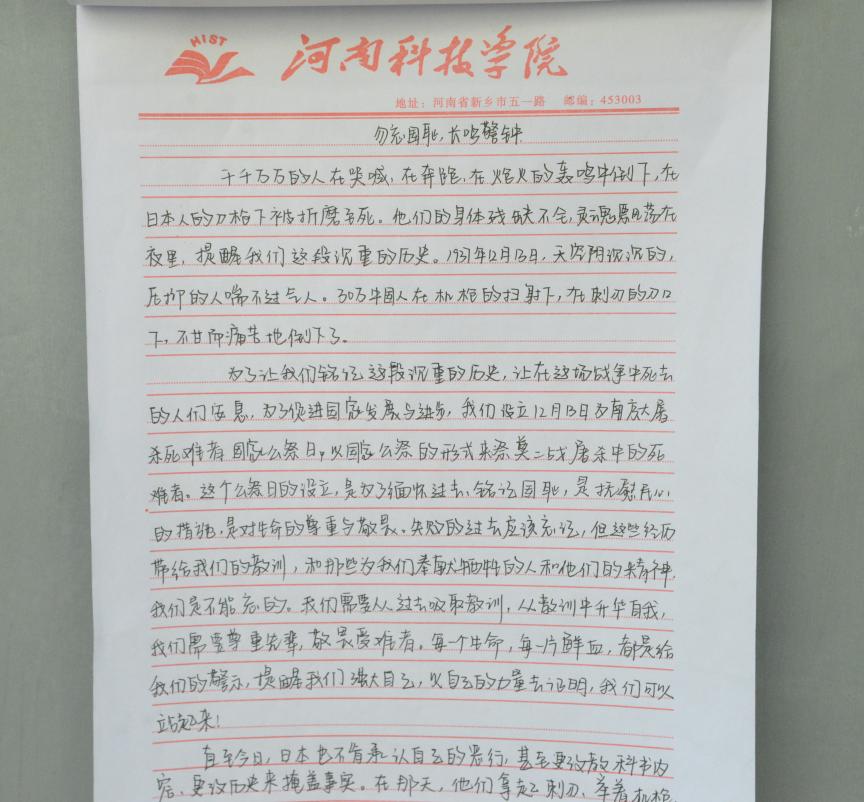 HIST
河南科技学院
地址：河南省新乡市五一路 邮编：453003
勿忘国耻，长鸣警钟
千千万万的人在哭喊，在奔跑，在炮火的轰鸣中倒下，在
日本人的刀枪下被折磨至死。他们的身体残缺不全，灵魂飘荡在
夜里，提醒我们这段沉重的历史。1937年12月13日，天空阴沉沉的，
压抑的人喘不过气人。30万中国人在机枪的扫射下，在刺刀的刀口
下，不甘而痛苦地倒下了。
为了让我们铭记这段沉重的历史，让在这场战争中死去
的人们安息，为了促进国家发展与进步，我们设立12月13日为南京大屠
杀死难者国家公祭日，以国家公祭的形式来祭奠二战屠杀中的死
难者。这个公祭日的设立，是为了缅怀过去、铭记国耻，是抚慰民心
的措施，是对生命的尊重与敬畏。失败的过去应该忘记，但这些经历
带给我们的教训，和那些为我们奉献牺牲的人和他们的精神，
我们是不能忘的。我们需要从过去吸取教训，从教训中升华自我，
我们需要尊重先辈，敬畏受难者。每一个生命，每一片鲜血，都是给
我们的警示，提醒我们强大自己，以自己的力量去证明，我们可以
站起来！
直至今日，日本也不肯承认自己的恶行，甚至更改教科书内
容、更改历史来掩盖事实。在那天，他们拿起刺刀、举着机枪